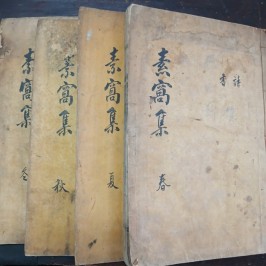 素窩集 春
詩
書
素窩集 夏
素窩集 秋
素窩集